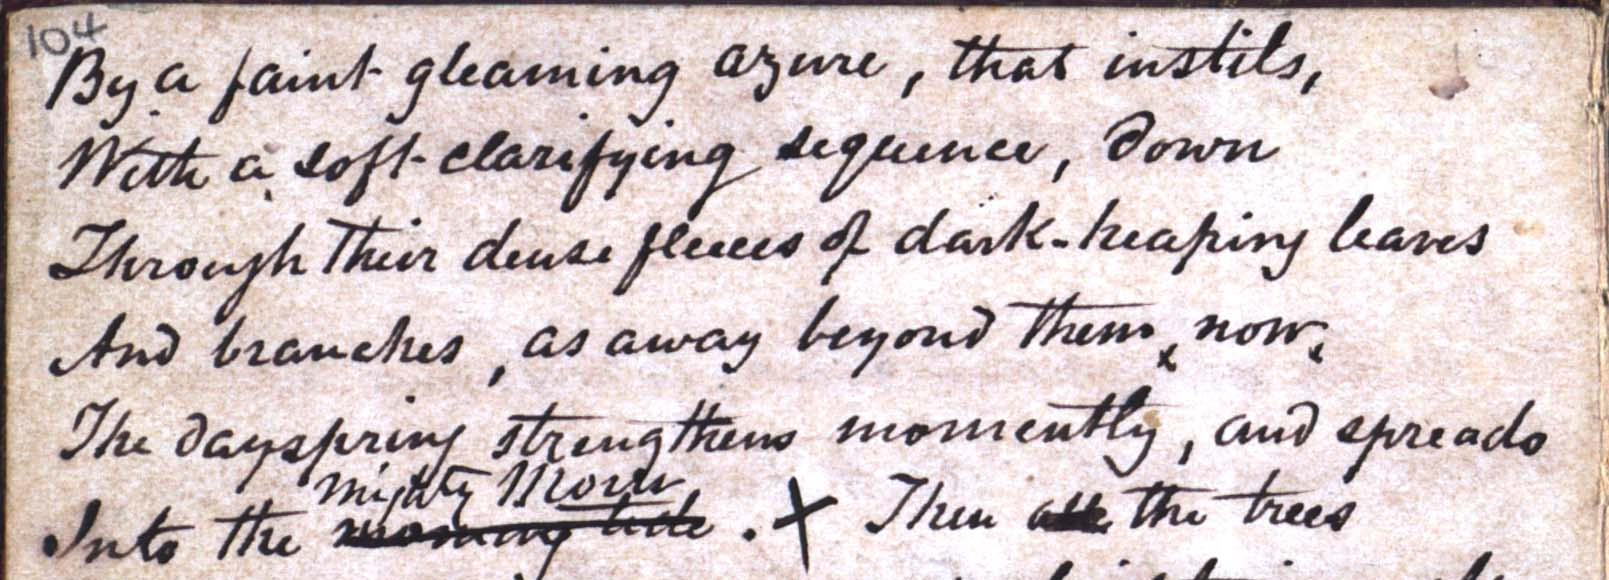 104
By a faint gleaming azure, that instils,
With a soft clarifying sequence, down
Through their dense fleeces of dark-heaping leaves
And branches, as away beyond them, now,
The dayspring strengthens momently, and spreads
mighty Morn
Into the morning tide . X Then all the trees